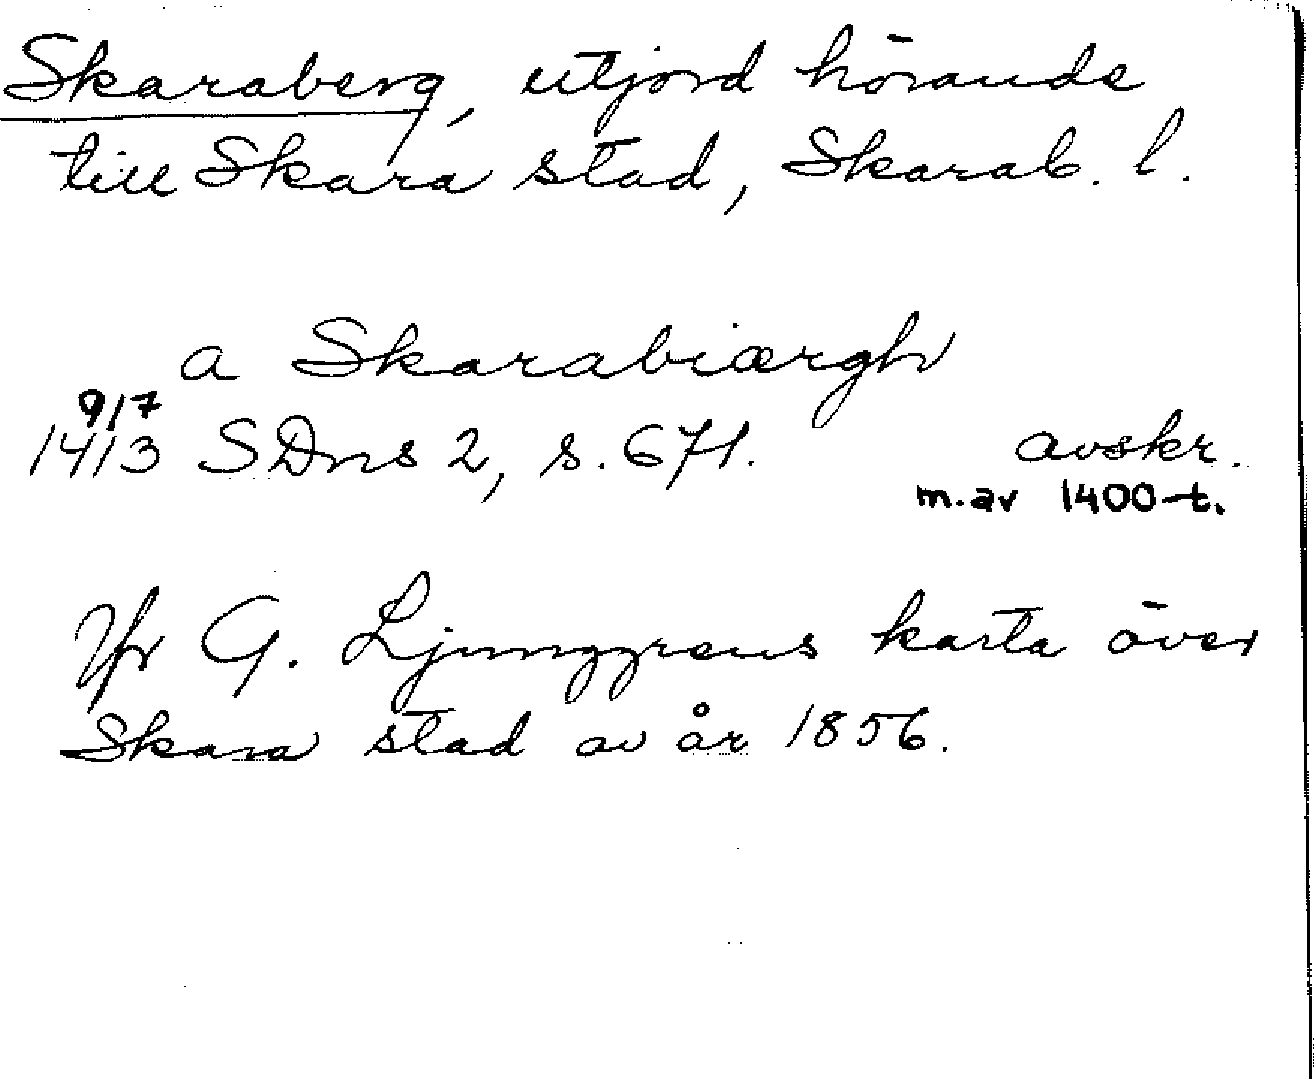 Skaraberg, utjord hörande
till Skara stad, Skarab. l.
a Skarabiærgh
9/7
1413 SDns 2, s. 671. avskr.
m. av 1400-t.
Jfr G. Ljunggrens karta över
Skara stad av år 1856.